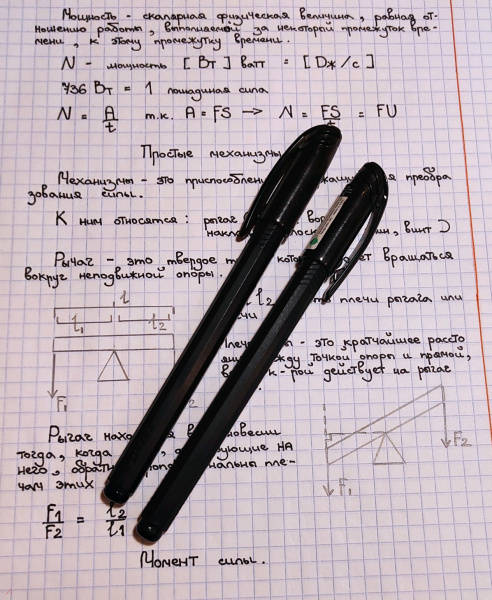 Мощность - скалярная физическая величина, равная от-
ношению работы, выполняемой за некоторой промежуток вре-
мени, к этому промежутку времени.
N - мощность [Вт] ватт = [Дж/с]
736 Вт = 1 лошадиная сила
N = A/t т.к. A = FS → N = FS/t = FU
Простые механизмы
Механизмы - это преобра
зования силы.
К ним относятся: рычаг
винт)
Рычаг - это твердое вращаться
вокруг неподвижной опоры.
l
l1 l2
l2 плечи рычага или
это кратчайшее рассто
между точкой опоры и прямой,
к-рой действует на рычаг
F1
2
Рычаг
тогда, когда НА
него, пле-
чам этих
F2
F1
F1/F2 = l2/l1
Момент силы.